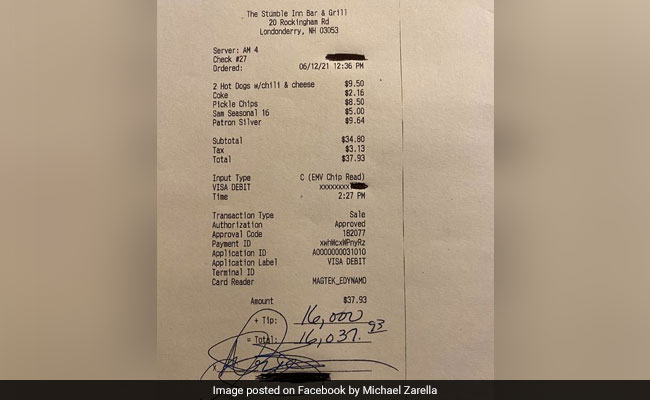 The Stumble Inn Bar & Grill
20 Rockingham Rd
Londonderry, NH 03053
Server: AM 4
Check #27
Ordered: 06/12/21 12:36 PM
2 Hot Dogs w/chili & cheese $9.50
Coke $2.16
Pickle Chips $8.50
Sam Seasonal 16 $5.00
Patron Silver $9.64
Subtotal $34.80
Tax $3.13
Total $37.93
Input Type C (EMV Chip Read)
VISA DEBIT xxxxxxxx
Time 2:27 PM
Transaction Type Sale
Authorization Approved
Approval Code 182077
Payment ID xwhWcxWPnyRz
Application ID A0000000031010
Application Label VISA DEBIT
Terminal ID
Card Reader MAGTEK_EDYNAMO
Amount $37.93
+ Tip: 16,000
= Total: 16,037.93
X
Image posted on Facebook by Michael Zarella